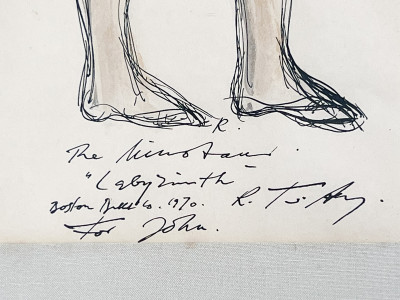 R.
The Minotaur.
"Labyrinth"
Boston Ballet Co. 1970. R.
For John.